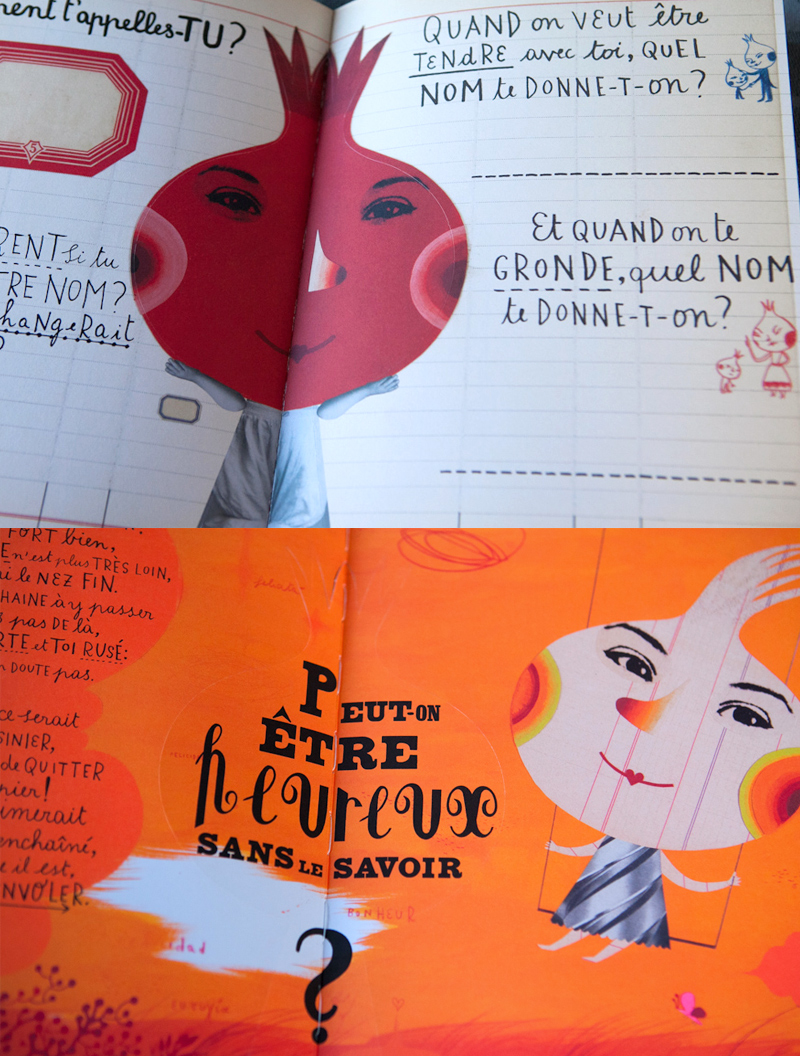 t'appelles-TU?
5
si tu
NOM?
changerait
?
QUAND on VEUT être
TENdRE avec toi, QUEL
NOM te DONNE-T-on?
Et QUAND on te
GRONDE, quel NOM
te DONNE-T-on?
FORT bien,
n'est plus TRÈS LOIN,
le NEZ FIN.
à y passer
pas DE là,
et TOI RUSÉ:
DOUTE pas.
ce serait
de QUITTER
enchaîné,
il est,
PEUT-ON
ÊTRE
heureux
SANS LE SAVOIR
?
BONHEUR